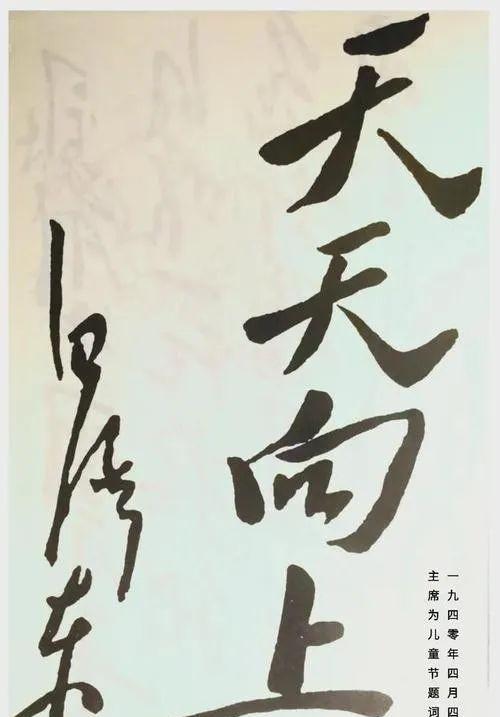 天天向上
毛泽东
一九四零年四月四
主席为儿童节题词